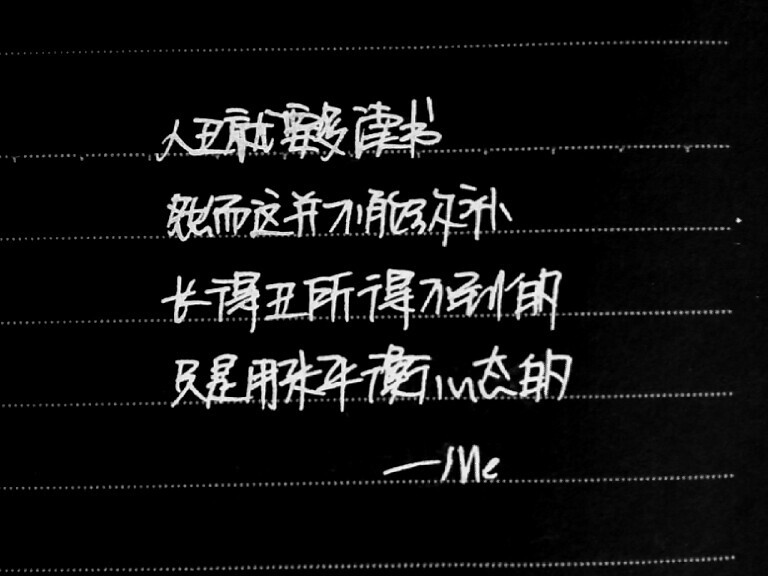 人丑就要多读书
然而这并不能弥补
长得丑所得不到的
只是用来平衡心态的
——Me